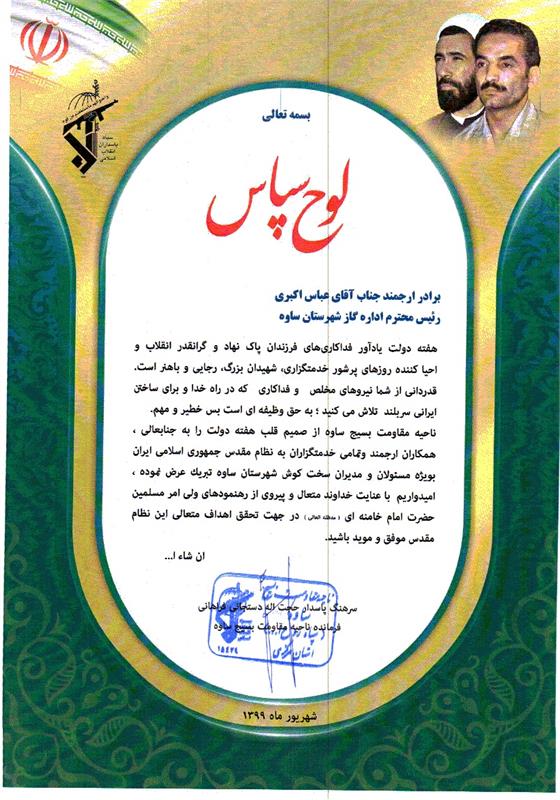 سپاه
پاسداران
انقلاب
اسلامی
بسمه تعالی
لوح سپاس
برادر ارجمند جناب آقای عباس اکبری
رئیس محترم اداره گاز شهرستان ساوه
هفته دولت یادآور فداکاری‌های فرزندان پاک نهاد و گرانقدر انقلاب و
احیا کننده روزهای پرشور خدمتگزاری، شهیدان بزرگ، رجایی و باهنر است.
قدردانی از شما نیروهای مخلص و فداکاری که در راه خدا و برای ساختن
ایرانی سربلند تلاش می کنید ؛ به حق وظیفه ای است بس خطیر و مهم.
ناحیه مقاومت بسیج ساوه از صمیم قلب هفته دولت را به جنابعالی ،
همکاران ارجمند وتمامی خدمتگزاران به نظام مقدس جمهوری اسلامی ایران
بویژه مسئولان و مدیران سخت کوش شهرستان ساوه تبریک عرض نموده ،
امیدواریم با عنایت خداوند متعال و پیروی از رهنمودهای ولی امر مسلمین
حضرت امام خامنه ای ( مدظله العالی ) در جهت تحقق اهداف متعالی این نظام
مقدس موفق و موید باشید.
ان شاء ا...
سرهنگ پاسدار حجت اله دستجانی فراهانی
فرمانده ناحیه مقاومت بسیج ساوه
۱۵۴۲۴
شهریور ماه ۱۳۹۹